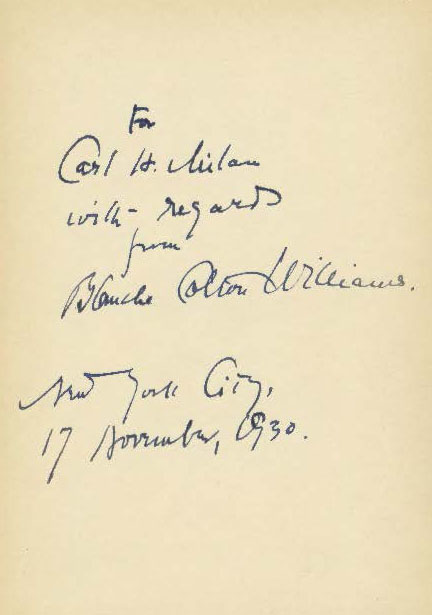 For
Carl H. Milam
with regards
from
Blanche Colton Williams.
New York City,
17 November, 1930.